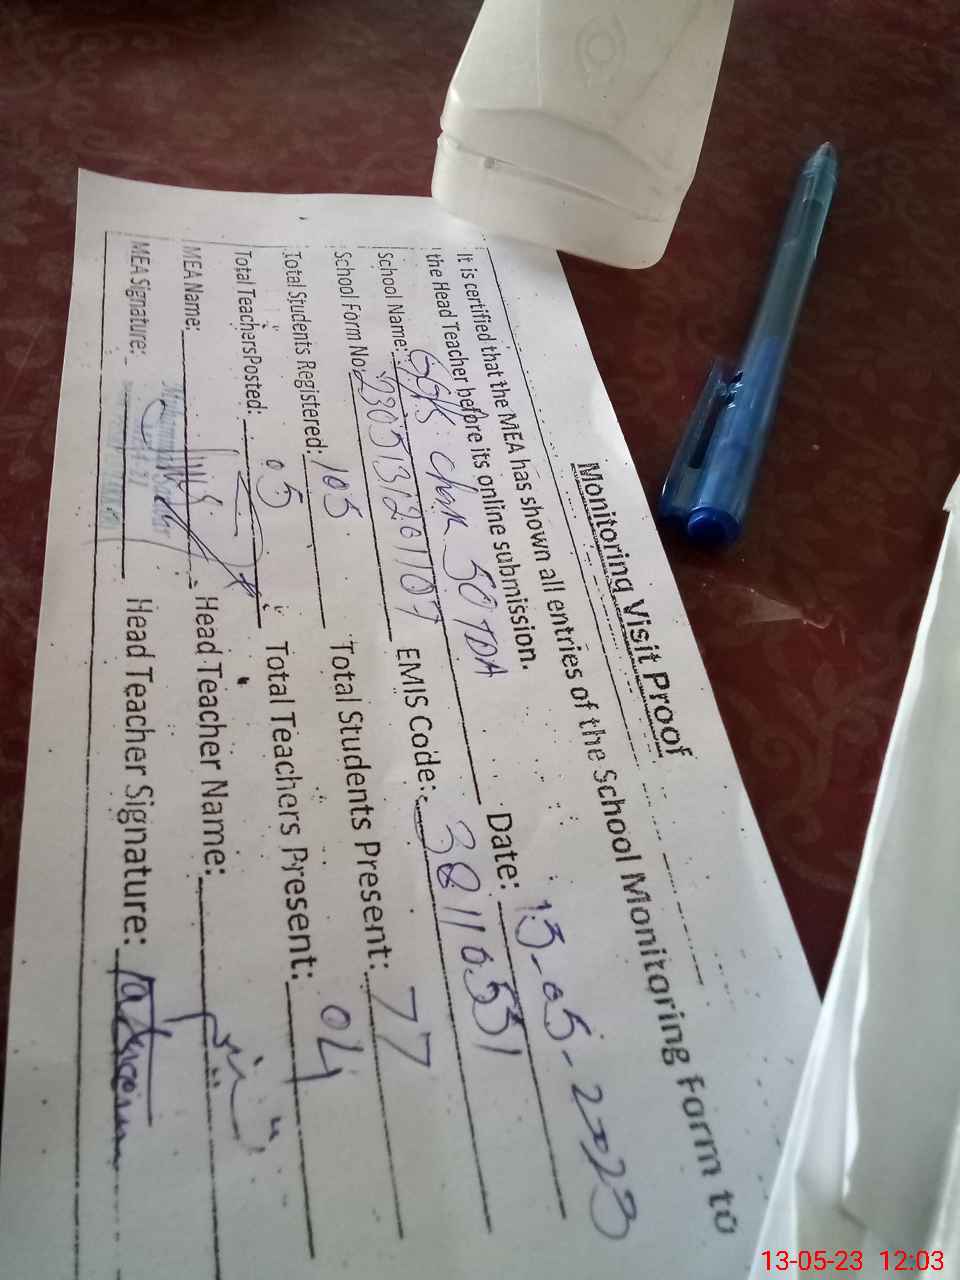 Monitoring Visit Proof
It is certified that the MEA has shown all entries of the School Monitoring Form to
the Head Teacher before its online submission.
School Name: Chak 50 TDA Date: 13-05-2023
School Form No. EMIS Code:
Total Students Registered: 105 Total Students Present: 77
Total Teachers Posted: 05 Total Teachers Present: 04
MEA Name: Head Teacher Name:
MEA Signature: Head Teacher Signature:
13-05-23 12:03